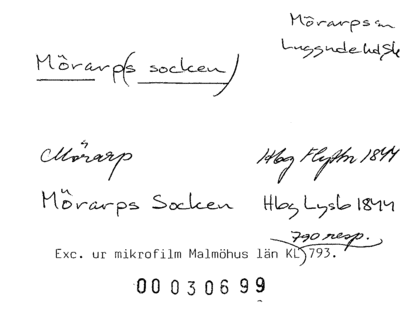 Mörarps sn
Luggude hd Sk
Mörarp(s socken)
Mörarp Hbg Flyttn 1844
Mörarps Socken Hbg Lysb 1844
790 resp.
Exc. ur mikrofilm Malmöhus län KL 793.
00030699